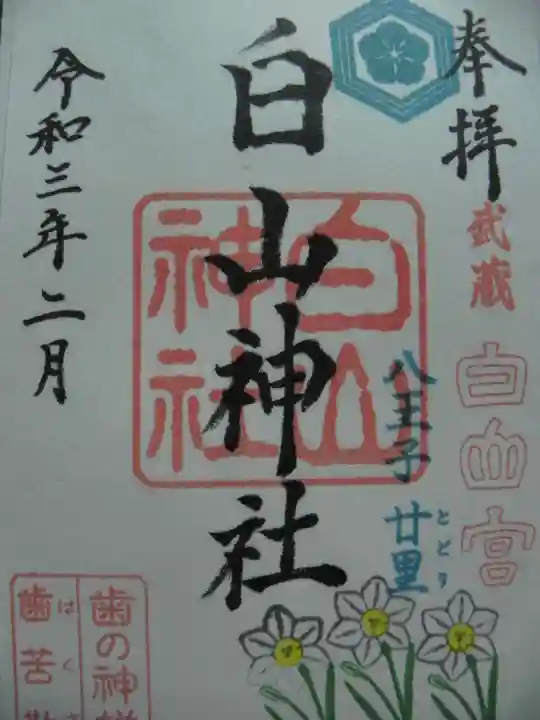 奉拝
武蔵
白血宮
八王子 廿里
とどり
白山神社
白山
神社
令和三年二月
歯の神様
はくさ
歯苦散